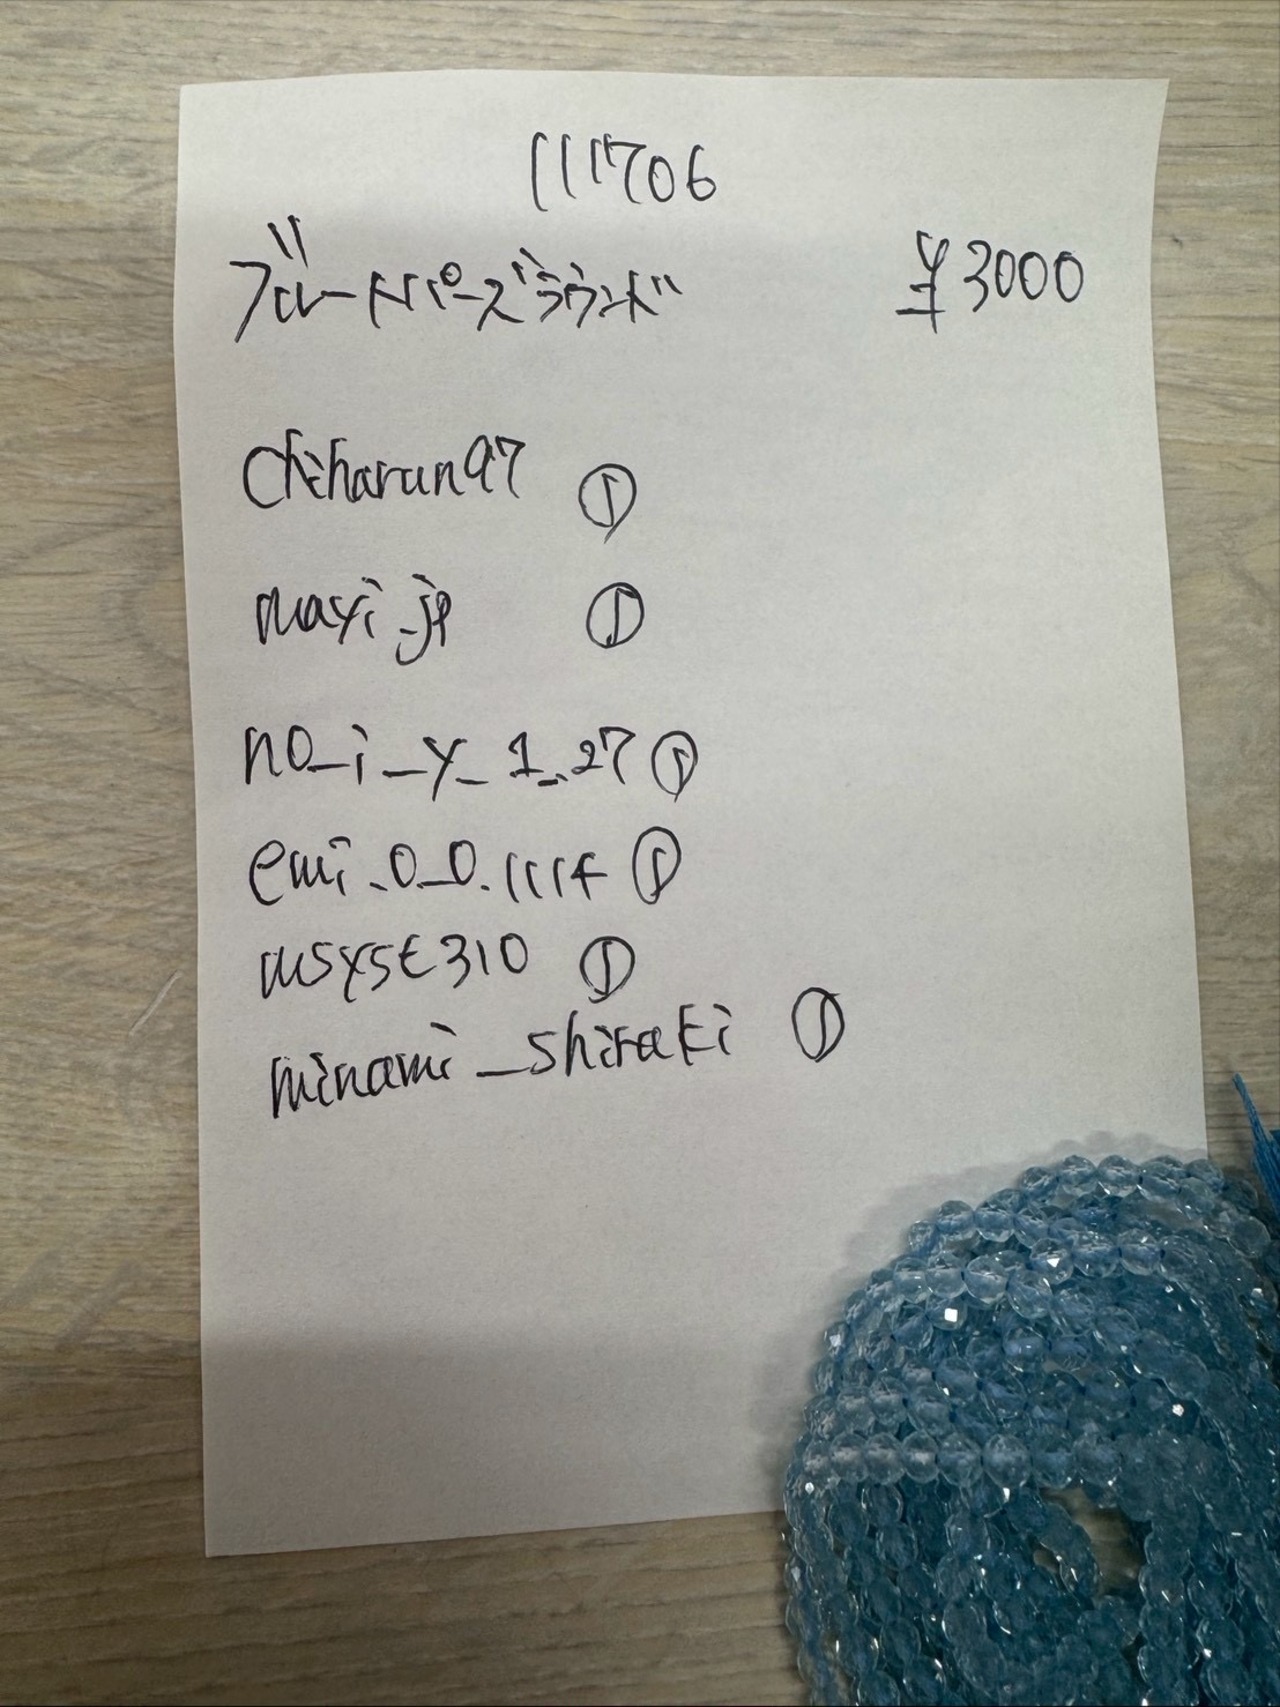 111706
ブルートパーズラウンド ¥3000
chiharun97 ①
mayi_jp ①
no_i_y_1_27 ①
emi_0_0.1114 ①
msyst310 ①
minami_shiraki ①